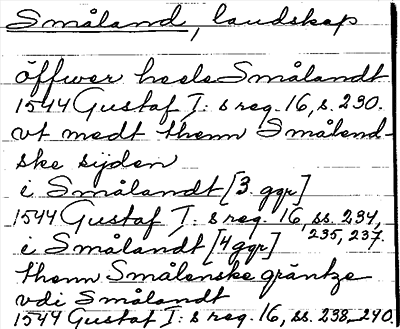 Småland, landskap
öffwer heele Smålandt
1544 Gustaf I: s reg. 16, s. 230.
vt medt thenn Smålend-
ske sijden
i Smålandt [3 ggr]
1544 Gustaf I: s reg. 16, ss. 234,
235, 237.
i Smålandt [4 ggr]
thenn Smålenske gräntze
vdi Smålandt
1544 Gustaf I: s reg. 16, ss. 238-240.